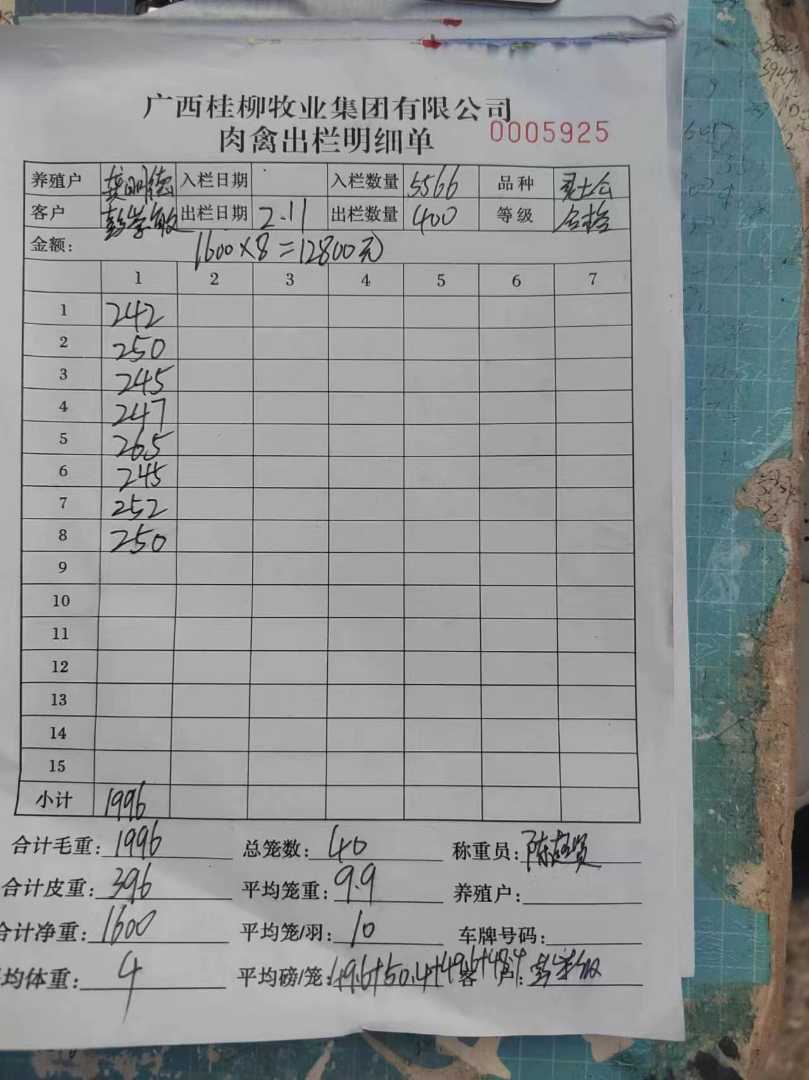 广西桂柳牧业集团有限公司
肉禽出栏明细单 0005925
养殖户 龚明德 入栏日期 入栏数量 5566 品种
客户 出栏日期 2.11 出栏数量 400 等级 合格
金额: 1600×8=12800元
1 2 3 4 5 6 7
1 242
2 250
3 245
4 247
5 265
6 245
7 252
8 250
9
10
11
12
13
14
15
小计 1996
合计毛重: 1996 总笼数: 40 称重员:
合计皮重: 396 平均笼重: 9.9 养殖户:
合计净重: 1600 平均笼/羽: 10 车牌号码:
均体重: 4 平均磅/笼: 49.6+50.4+49.6+48.4 客